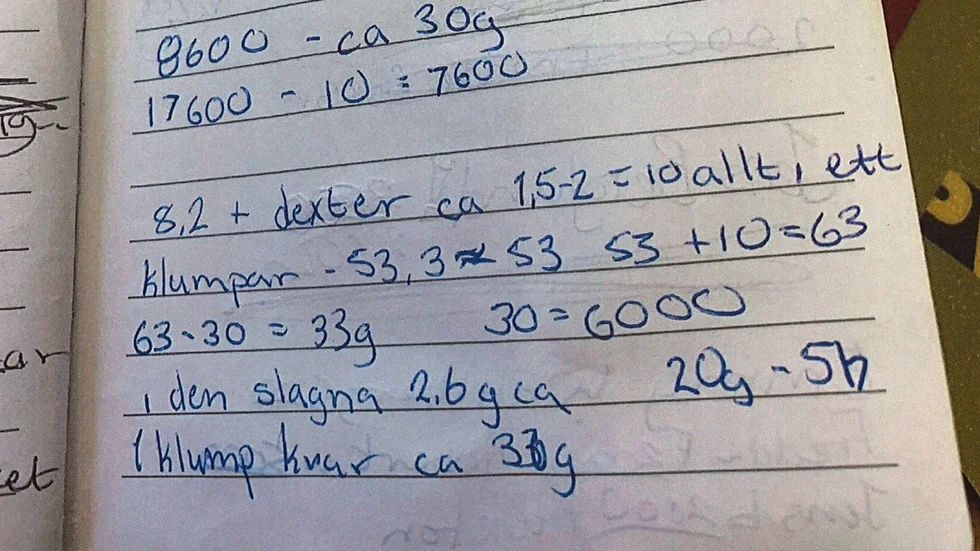 8600 - ca 30g
17600 - 10 = 7600
8,2 + dexter ca 1,5-2 = 10 allt i ett
klumpar - 53,3 ≈ 53 53 + 10 = 63
63-30 = 33g 30 = 6000
i den slagna 2,6 g ca 20g - 5h
1 klump kvar ca 33g
ar
et